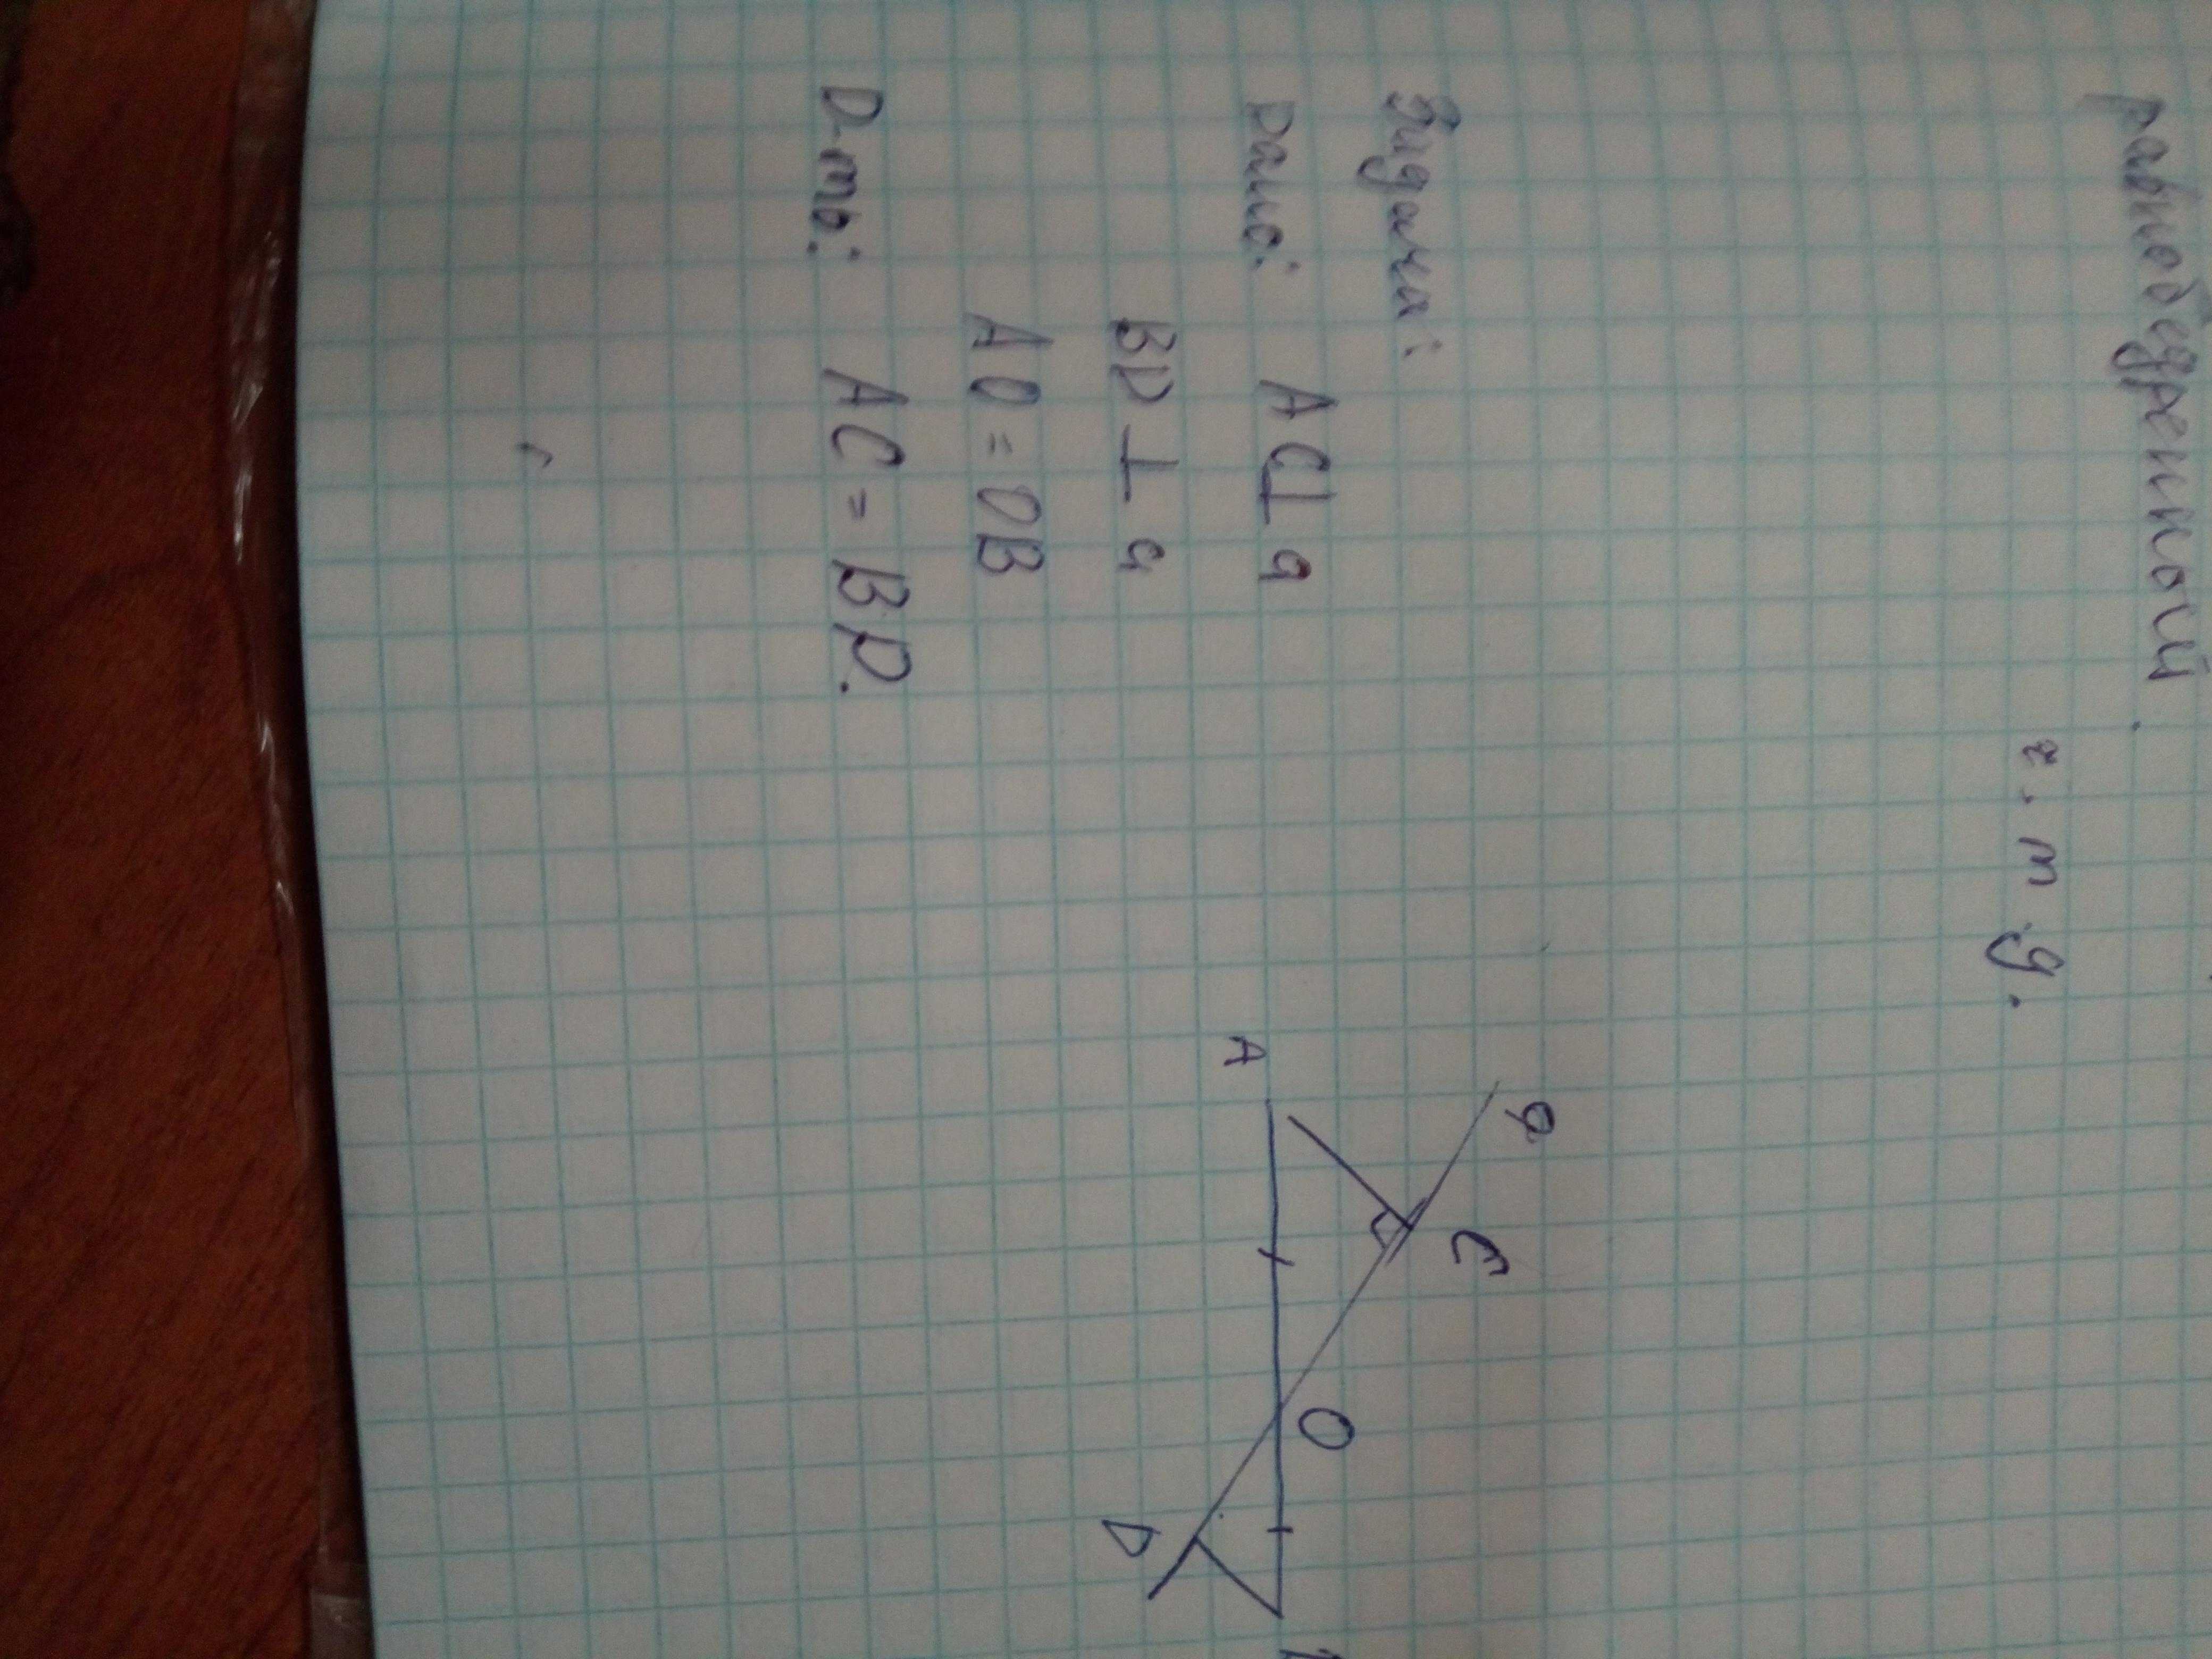 равнобедренный.
ч. т. д.
Задача:
Дано: AC⊥a
BD⊥a
AO=OB
D-ть: AC=BD.
a
C
A
O
D